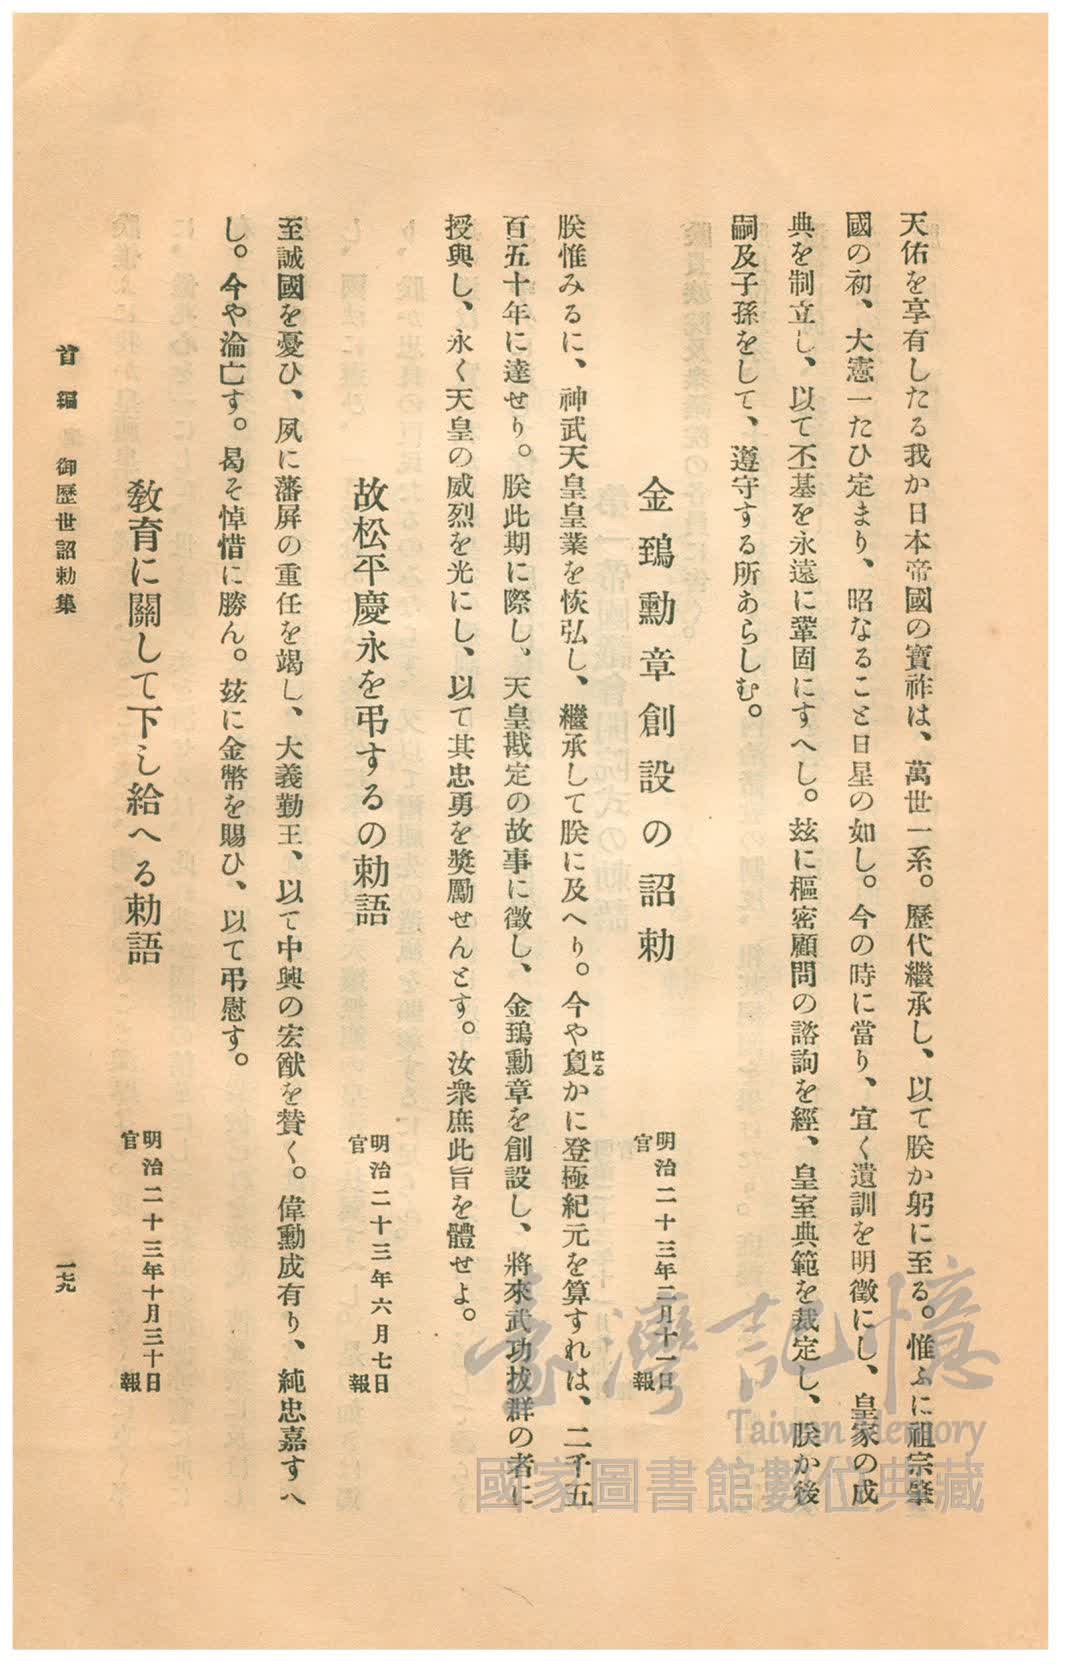 天佑を享有したる我か日本帝國の寶祚は、萬世一系。歷代繼承し、以て朕か躬に至る。惟ふに祖宗肇
國の初、大憲一たひ定まり、昭なること日星の如し。今の時に當り、宜く遺訓を明徵にし、皇家の成
典を制立し、以て丕基を永遠に鞏固にすへし。玆に樞密顧問の諮詢を經、皇室典範を裁定し、朕か後
嗣及子孫をして、遵守する所あらしむ。
金鵄勳章創設の詔勅
明治二十三年二月十一日
官報
朕惟みるに、神武天皇皇業を恢弘し、繼承して朕に及へり。今や敻かに登極紀元を算すれは、二千五
はる
百五十年に達せり。朕此期に際し、天皇戡定の故事に徵し、金鵄勳章を創設し、將來武功拔群の者に
授與し、永く天皇の威烈を光にし、以て其忠勇を奬勵せんとす。汝衆庶此旨を體せよ。
故松平慶永を弔するの勅語
明治二十三年六月七日
官報
至誠國を憂ひ、夙に藩屏の重任を竭し、大義勤王、以て中興の宏猷を賛く。偉勳成有り、純忠嘉すへ
し。今や淪亡す。曷そ悼惜に勝ん。玆に金幣を賜ひ、以て弔慰す。
敎育に關して下し給へる勅語
明治二十三年十月三十日
官報
首編 御歷世詔勅集
一七九
臺灣記憶
Taiwan Memory
國家圖書館數位典藏